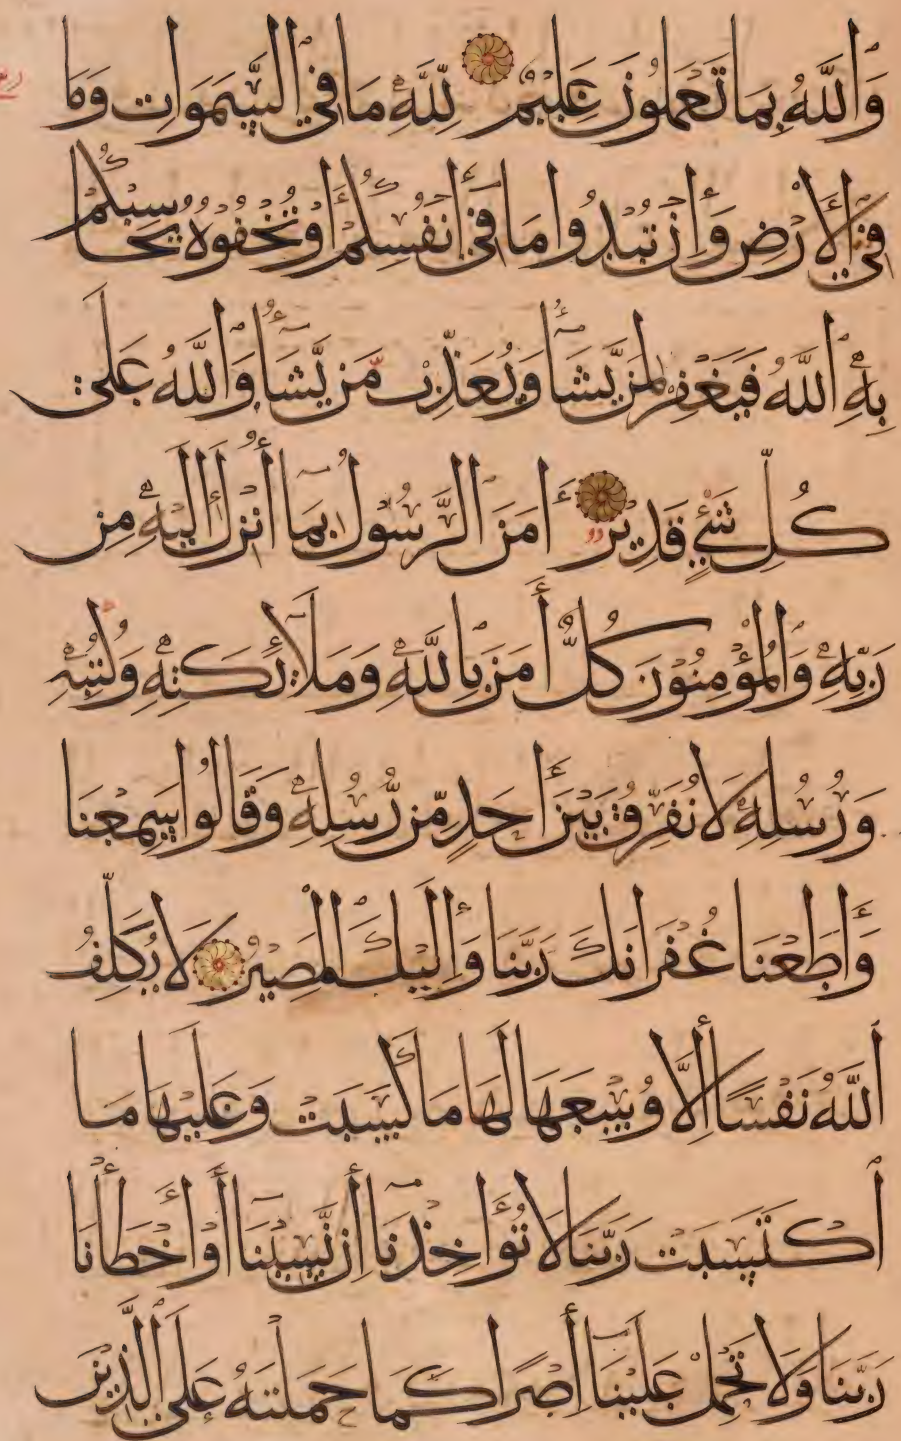 وَاللَّهُ بِمَا تَعْمَلُونَ عَلِيمٌ لِلَّهِ مَا فِي السَّمَوَاتِ وَمَا
فِي الْأَرْضِ وَإِنْ تُبْدُوا مَا فِي أَنْفُسِكُمْ أَوْ تُخْفُوهُ يُحَاسِبْكُمْ
بِهِ اللَّهُ فَيَغْفِرُ لِمَنْ يَشَاءُ وَيُعَذِّبُ مَنْ يَشَاءُ وَاللَّهُ عَلَى
كُلِّ شَيْءٍ قَدِيرٌ آمَنَ الرَّسُولُ بِمَا أُنْزِلَ إِلَيْهِ مِنْ
رَبِّهِ وَالْمُؤْمِنُونَ كُلٌّ آمَنَ بِاللَّهِ وَمَلَائِكَتِهِ وَكُتُبِهِ
وَرُسُلِهِ لَا نُفَرِّقُ بَيْنَ أَحَدٍ مِّنْ رُّسُلِهِ وَقَالُوا سَمِعْنَا
وَأَطَعْنَا غُفْرَانَكَ رَبَّنَا وَإِلَيْكَ الْمَصِيرُ لَا يُكَلِّفُ
اللَّهُ نَفْسًا إِلَّا وُسْعَهَا لَهَا مَا كَسَبَتْ وَعَلَيْهَا مَا
اكْتَسَبَتْ رَبَّنَا لَا تُؤَاخِذْنَا إِنْ نَّسِينَا أَوْ أَخْطَأْنَا
رَبَّنَا وَلَا تَحْمِلْ عَلَيْنَا إِصْرًا كَمَا حَمَلْتَهُ عَلَى الَّذِينَ